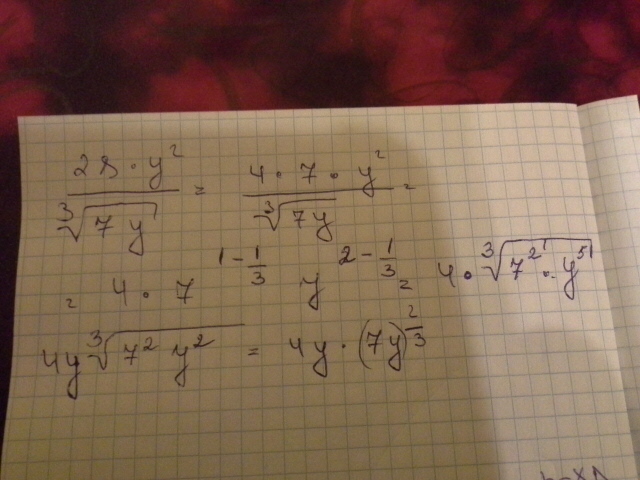 28 · y² / ∛(7y) = 4 · 7 · y² / ∛(7y) =
= 4 · 7^(1 - 1/3) y^(2 - 1/3) = 4 · ∛(7² · y⁵)
4y ∛(7² y²) = 4y · (7y)^(2/3)